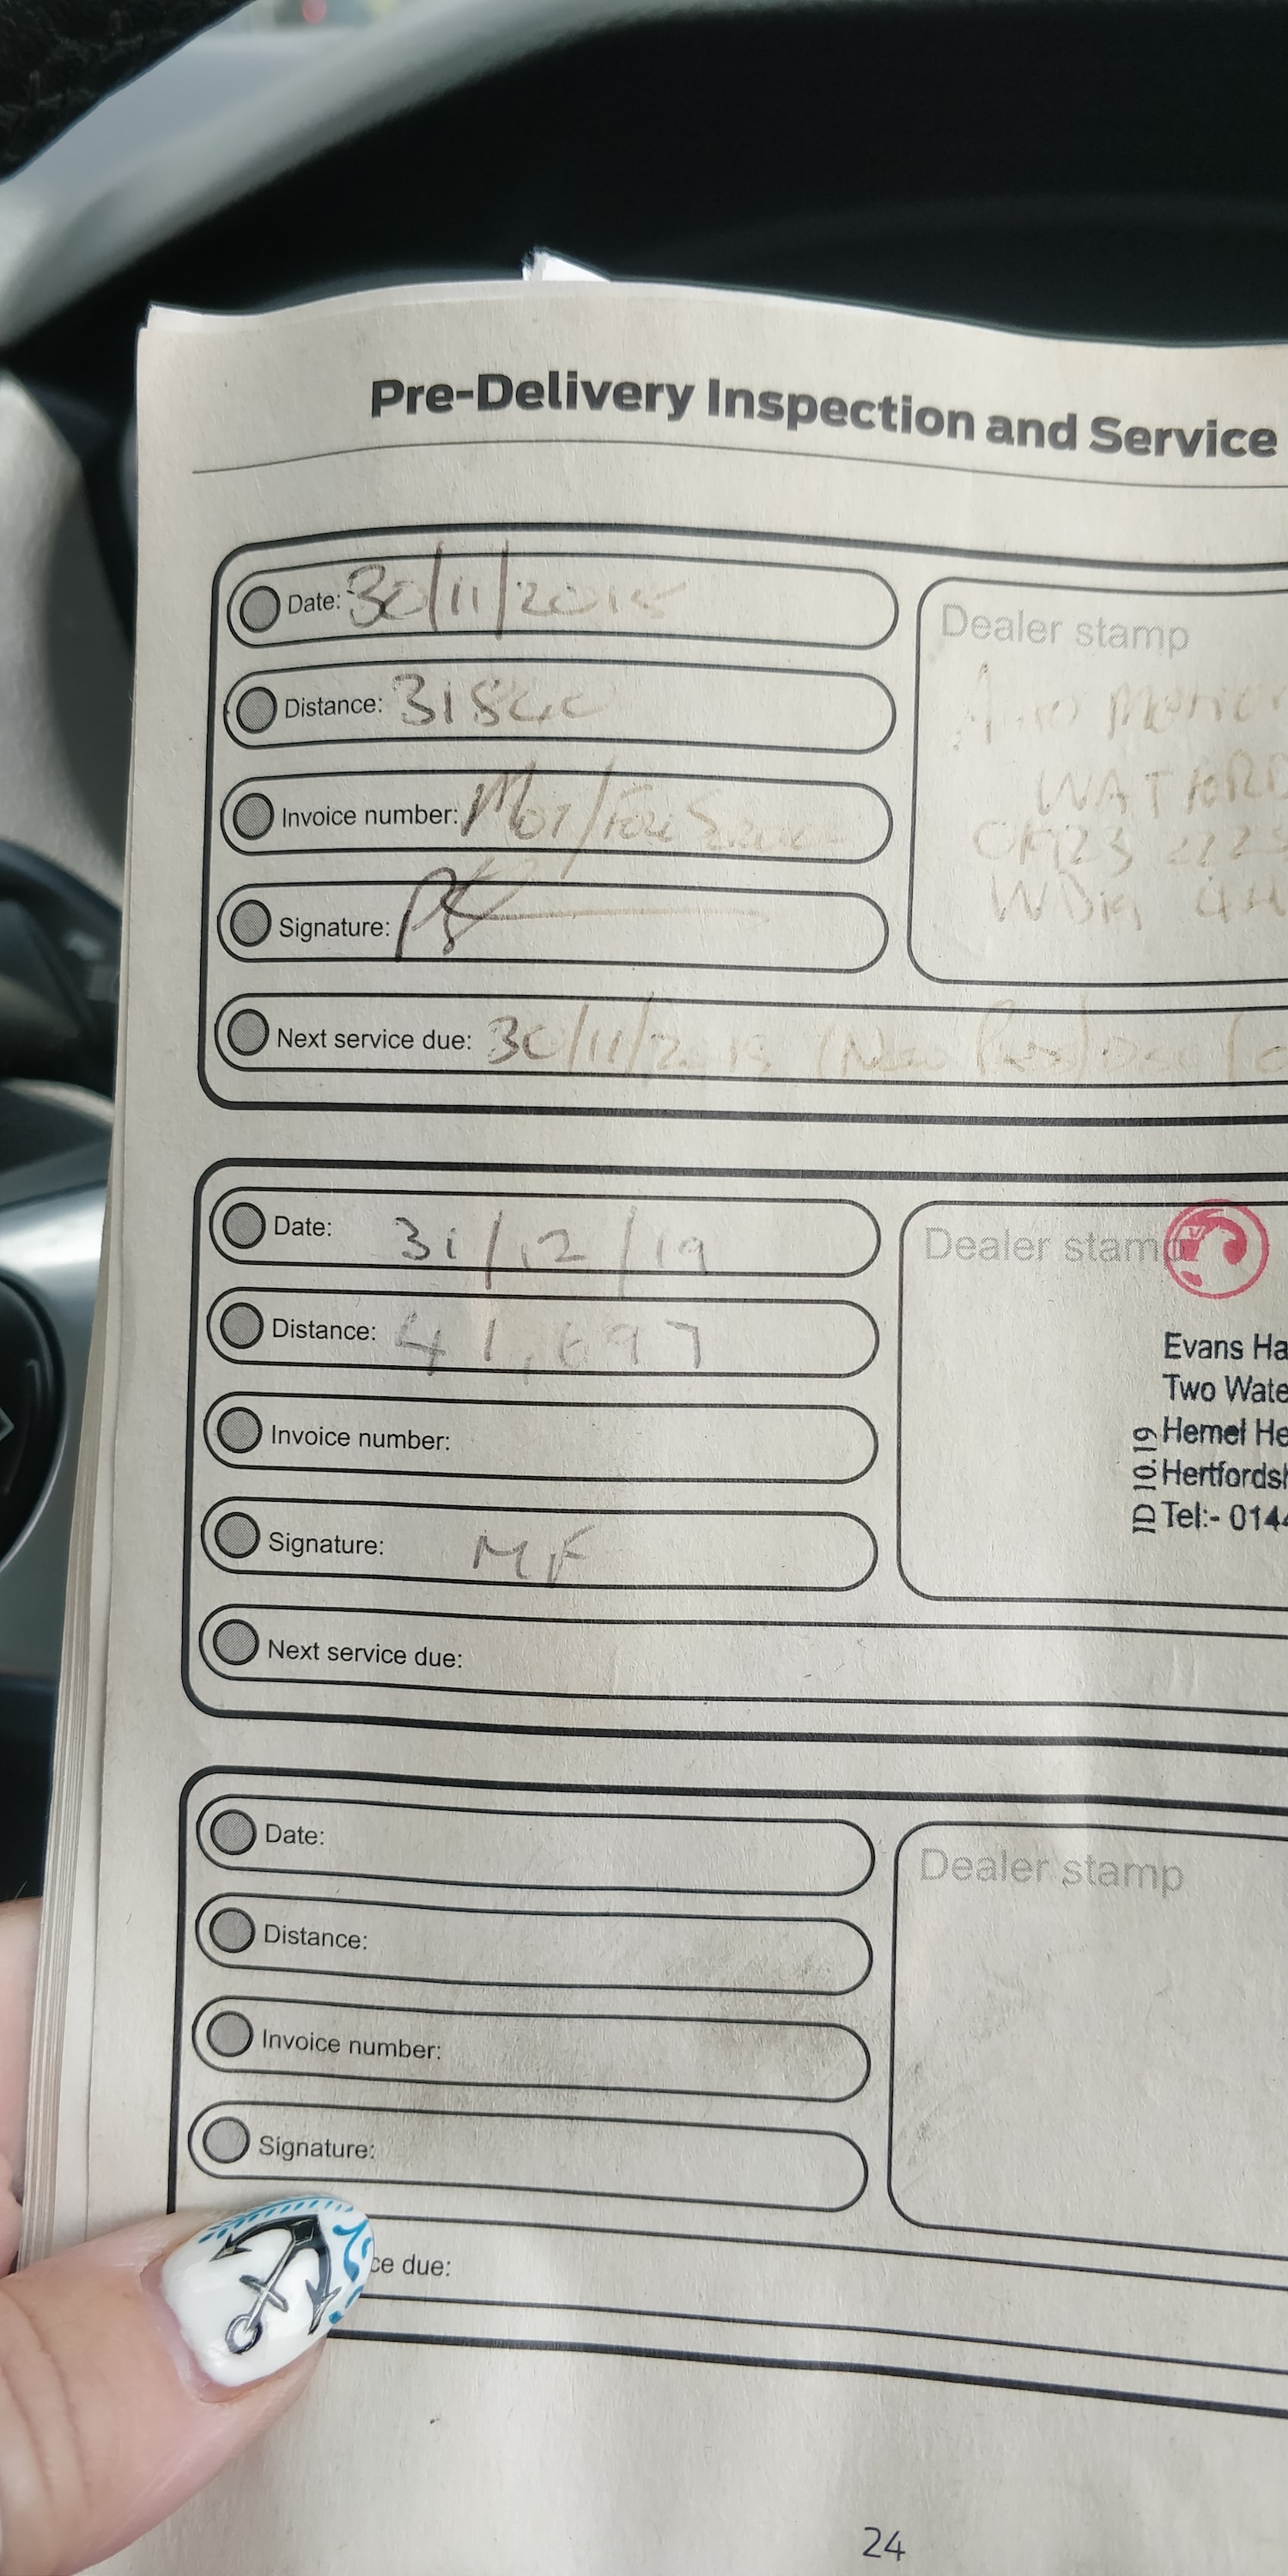 Pre-Delivery Inspection and Service
Date: 30/11/2018
Distance:
Invoice number: MOT/
Signature:
Next service due: 30/11/2019 (New
Dealer stamp
WATFORD
Date: 31/12/19
Distance: 41,697
Invoice number:
Signature: MF
Next service due:
Dealer stamp
Evans Ha
Two Wate
Hemel He
Hertfordsh
Tel:- 0144
ID 10.19
Date:
Distance:
Invoice number:
Signature:
ce due:
Dealer stamp
24